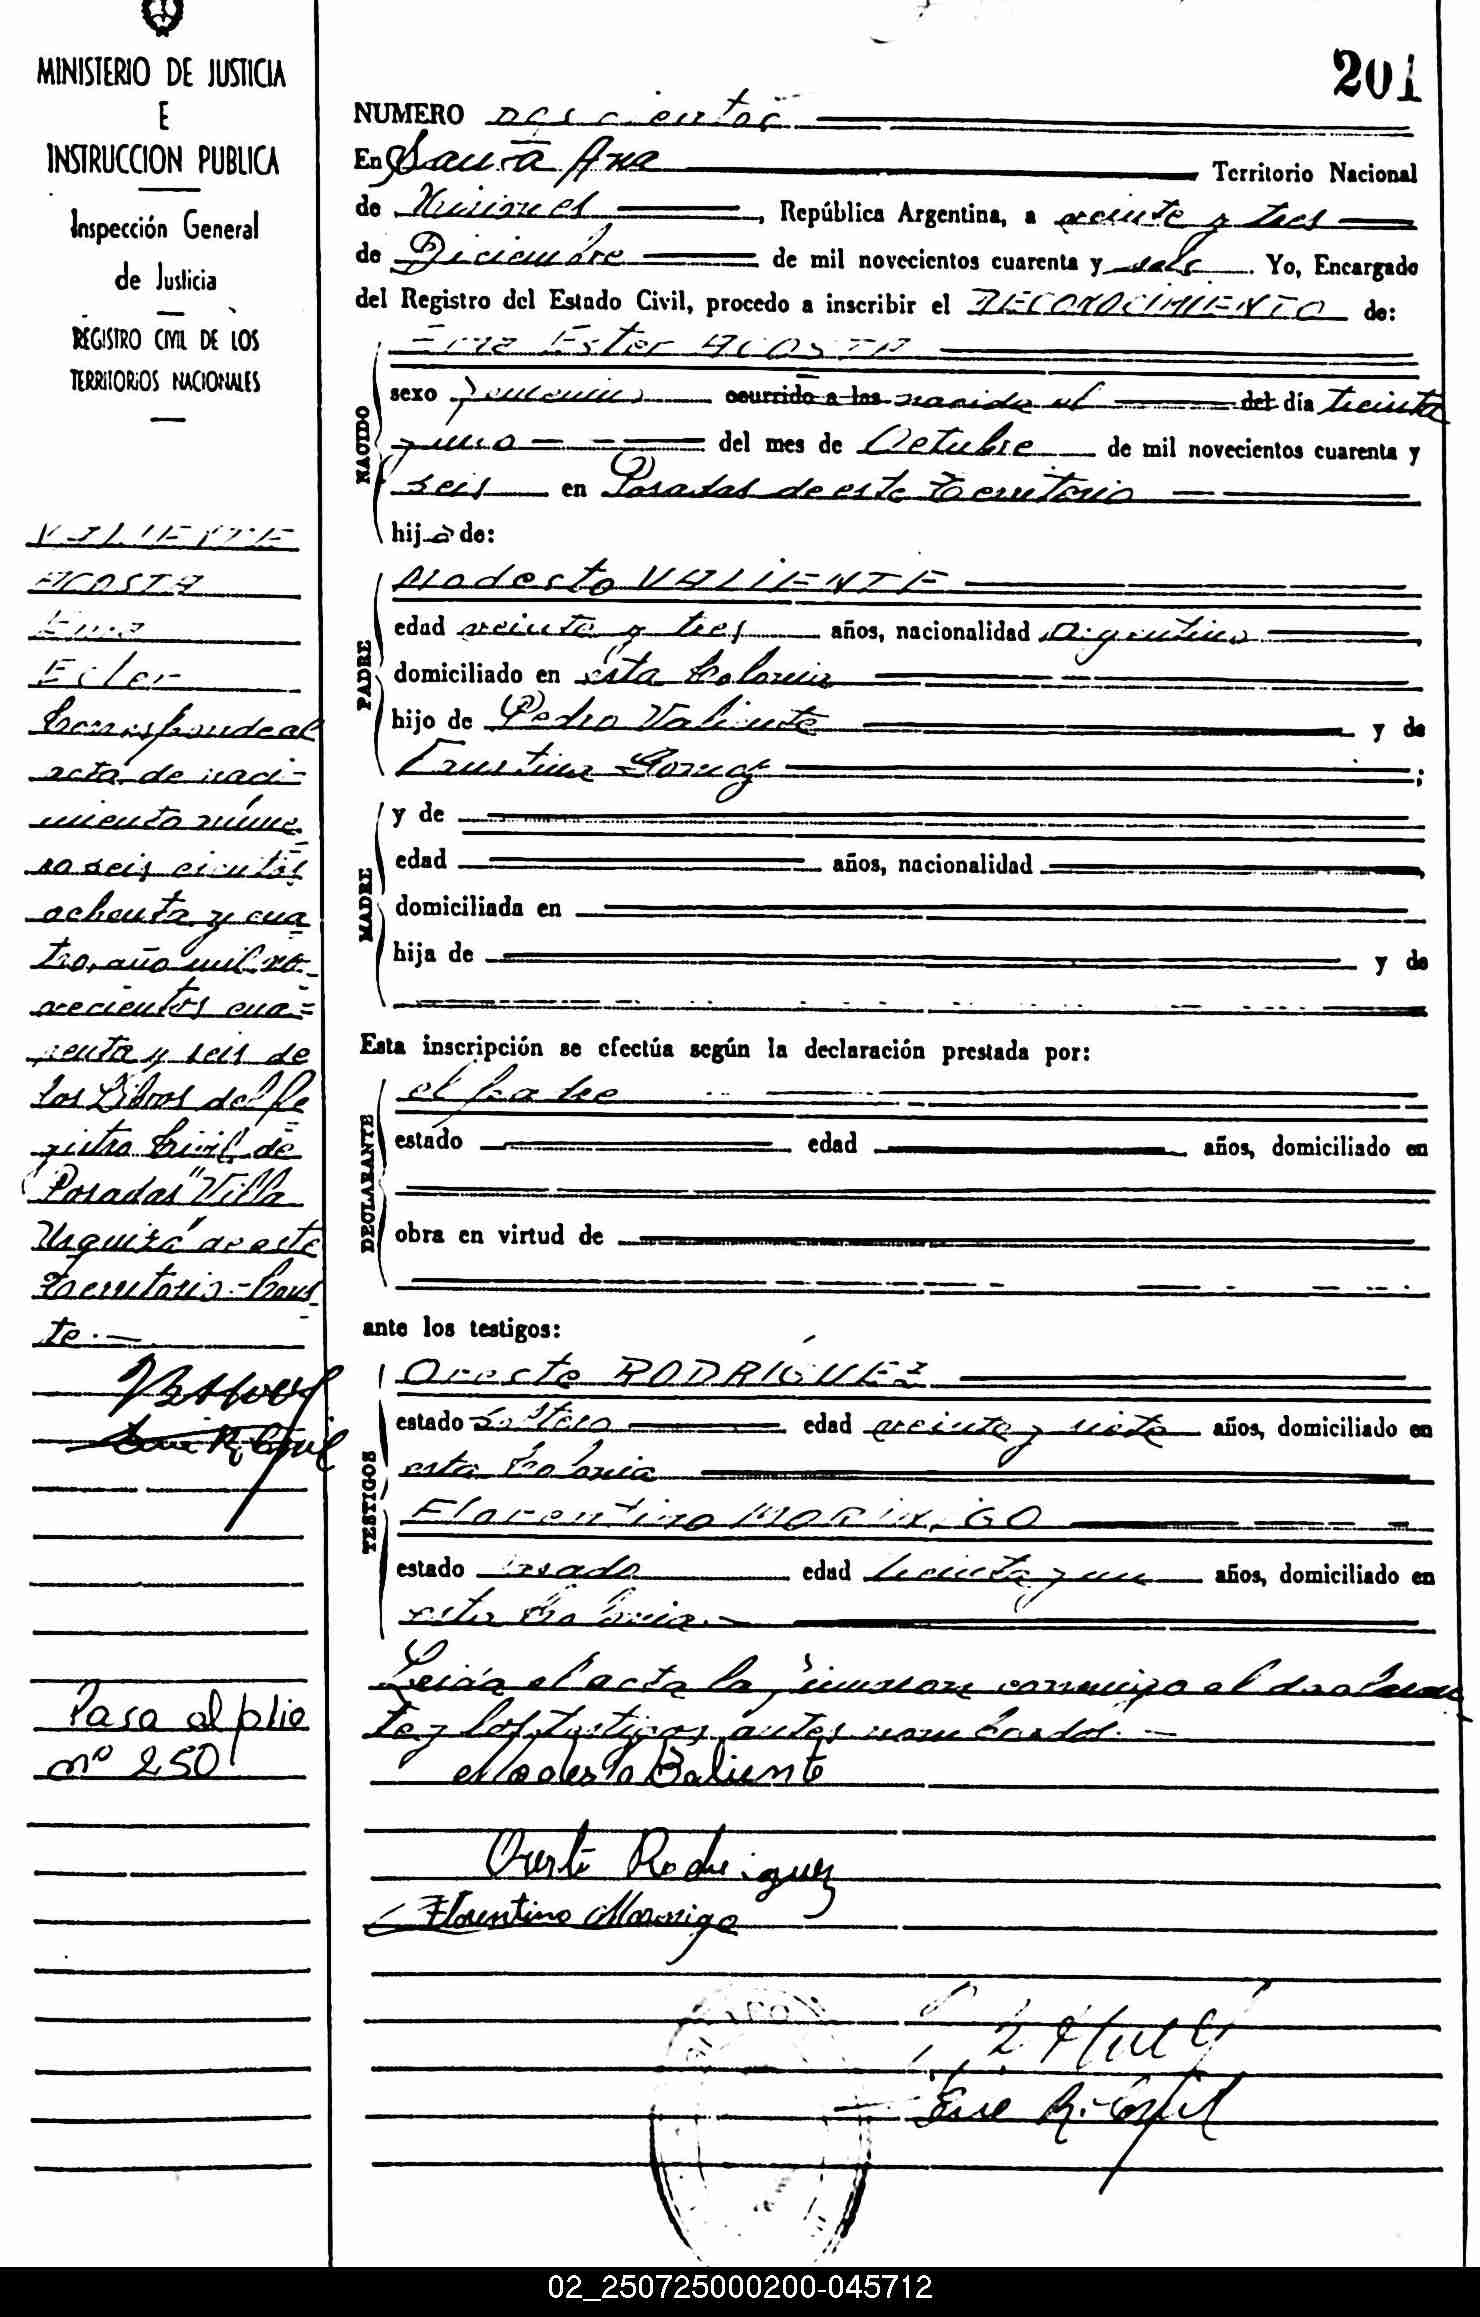 MINISTERIO DE JUSTICIA
E
INSTRUCCION PUBLICA
Inspección General
de Justicia
REGISTRO CIVIL DE LOS
TERRITORIOS NACIONALES
VALIENTE
ACOSTA
Ema
Ester
Corresponde al
acta de naci-
miento núme
ro seis cientos
ochenta y cua
tro, año mil no-
vecientos cua=
renta y seis de
los Libros del Re
gistro Civil de
Posadas "Villa
Urquiza" de este
Territorio.- Cons
te.-
Pasa al folio
nº 250
201
NUMERO Doscientos
En Santa Ana Territorio Nacional
de Misiones, República Argentina, a veinte y tres
de Diciembre de mil novecientos cuarenta y seis. Yo, Encargado
del Registro del Estado Civil, procedo a inscribir el RECONOCIMIENTO de:
Ema Ester ACOSTA
NACIDO
sexo femenino ocurrido a las nacida el del día treinta
y uno del mes de Octubre de mil novecientos cuarenta y
seis en Posadas de este Territorio
hija de:
PADRE
Modesto VALIENTE
edad veinte y tres años, nacionalidad argentino
domiciliado en esta Colonia
hijo de Pedro Valiente y de
Faustina ;
MADRE
y de
edad años, nacionalidad
domiciliada en
hija de y de
Esta inscripción se efectúa según la declaración prestada por:
DECLARANTE
el padre
estado edad años, domiciliado en
obra en virtud de
ante los testigos:
TESTIGOS
Oreste RODRÍGUEZ
estado Soltero edad veinte y siete años, domiciliado en
esta Colonia
Florentino MORINIGO
estado casado edad treinta y un años, domiciliado en
esta Colonia.-
Leída el acta la firmaron conmigo el declaran
te y los testigos antes nombrados.-
Modesto Baliente
Oreste Rodriguez
Florentino Morinigo
02_250725000200-045712